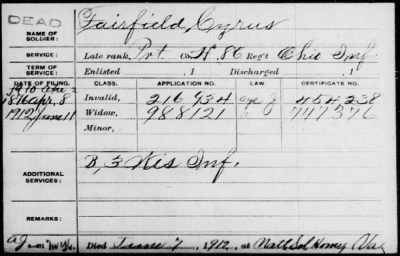 DEAD
NAME OF SOLDIER: Fairfield, Cyrus
SERVICE: Late rank, Pvt Co. H, 86 Reg't Ohio Inf.
TERM OF SERVICE: Enlisted , 1 Discharged , 1
DATE OF FILING. CLASS. APPLICATION NO. LAW CERTIFICATE NO.
1876 Apr. 8 Invalid, 216 934 454 238
1912 June 11 Widow, 988121 747376
Minor,
ADDITIONAL SERVICES: B, 3 Wis Inf.
REMARKS:
Died June 7, 1912, at Natl Sol Home, Va